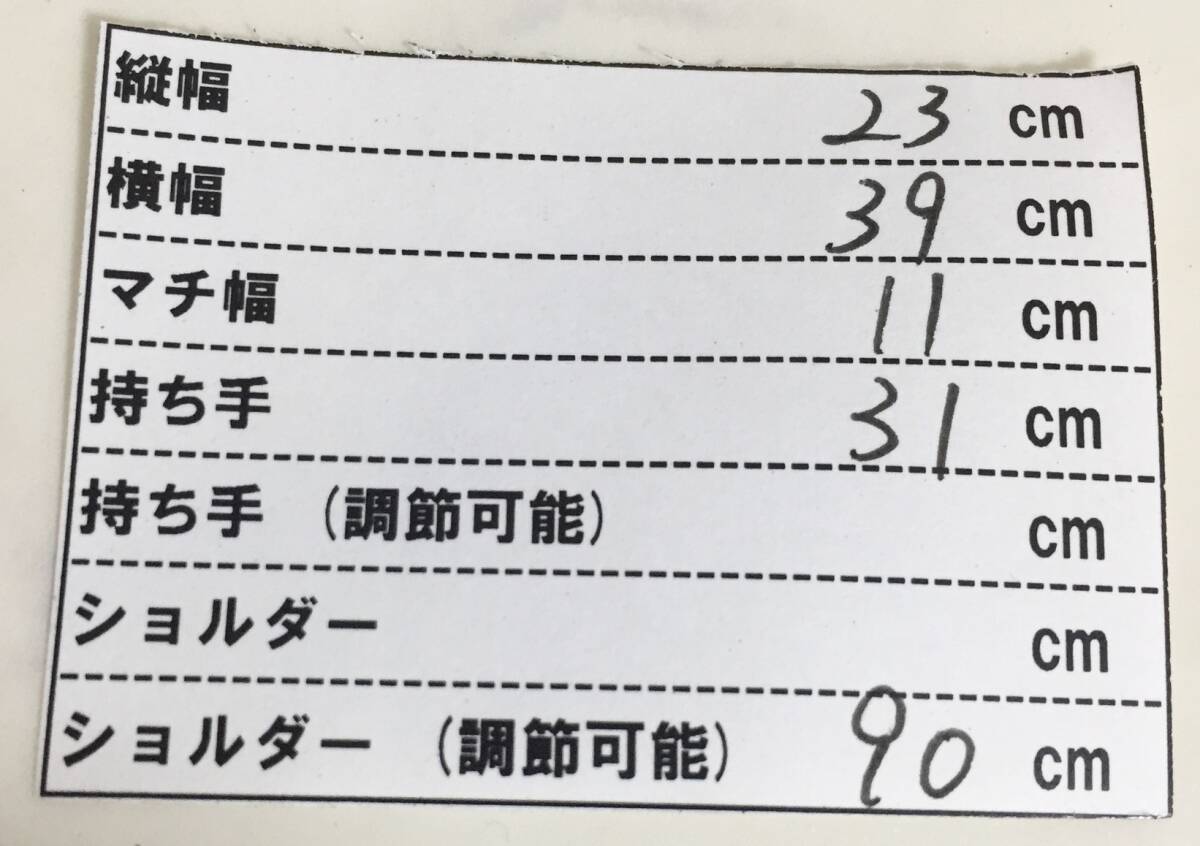 縦幅 23 cm
横幅 39 cm
マチ幅 11 cm
持ち手 31 cm
持ち手 (調節可能) cm
ショルダー cm
ショルダー (調節可能) 90 cm